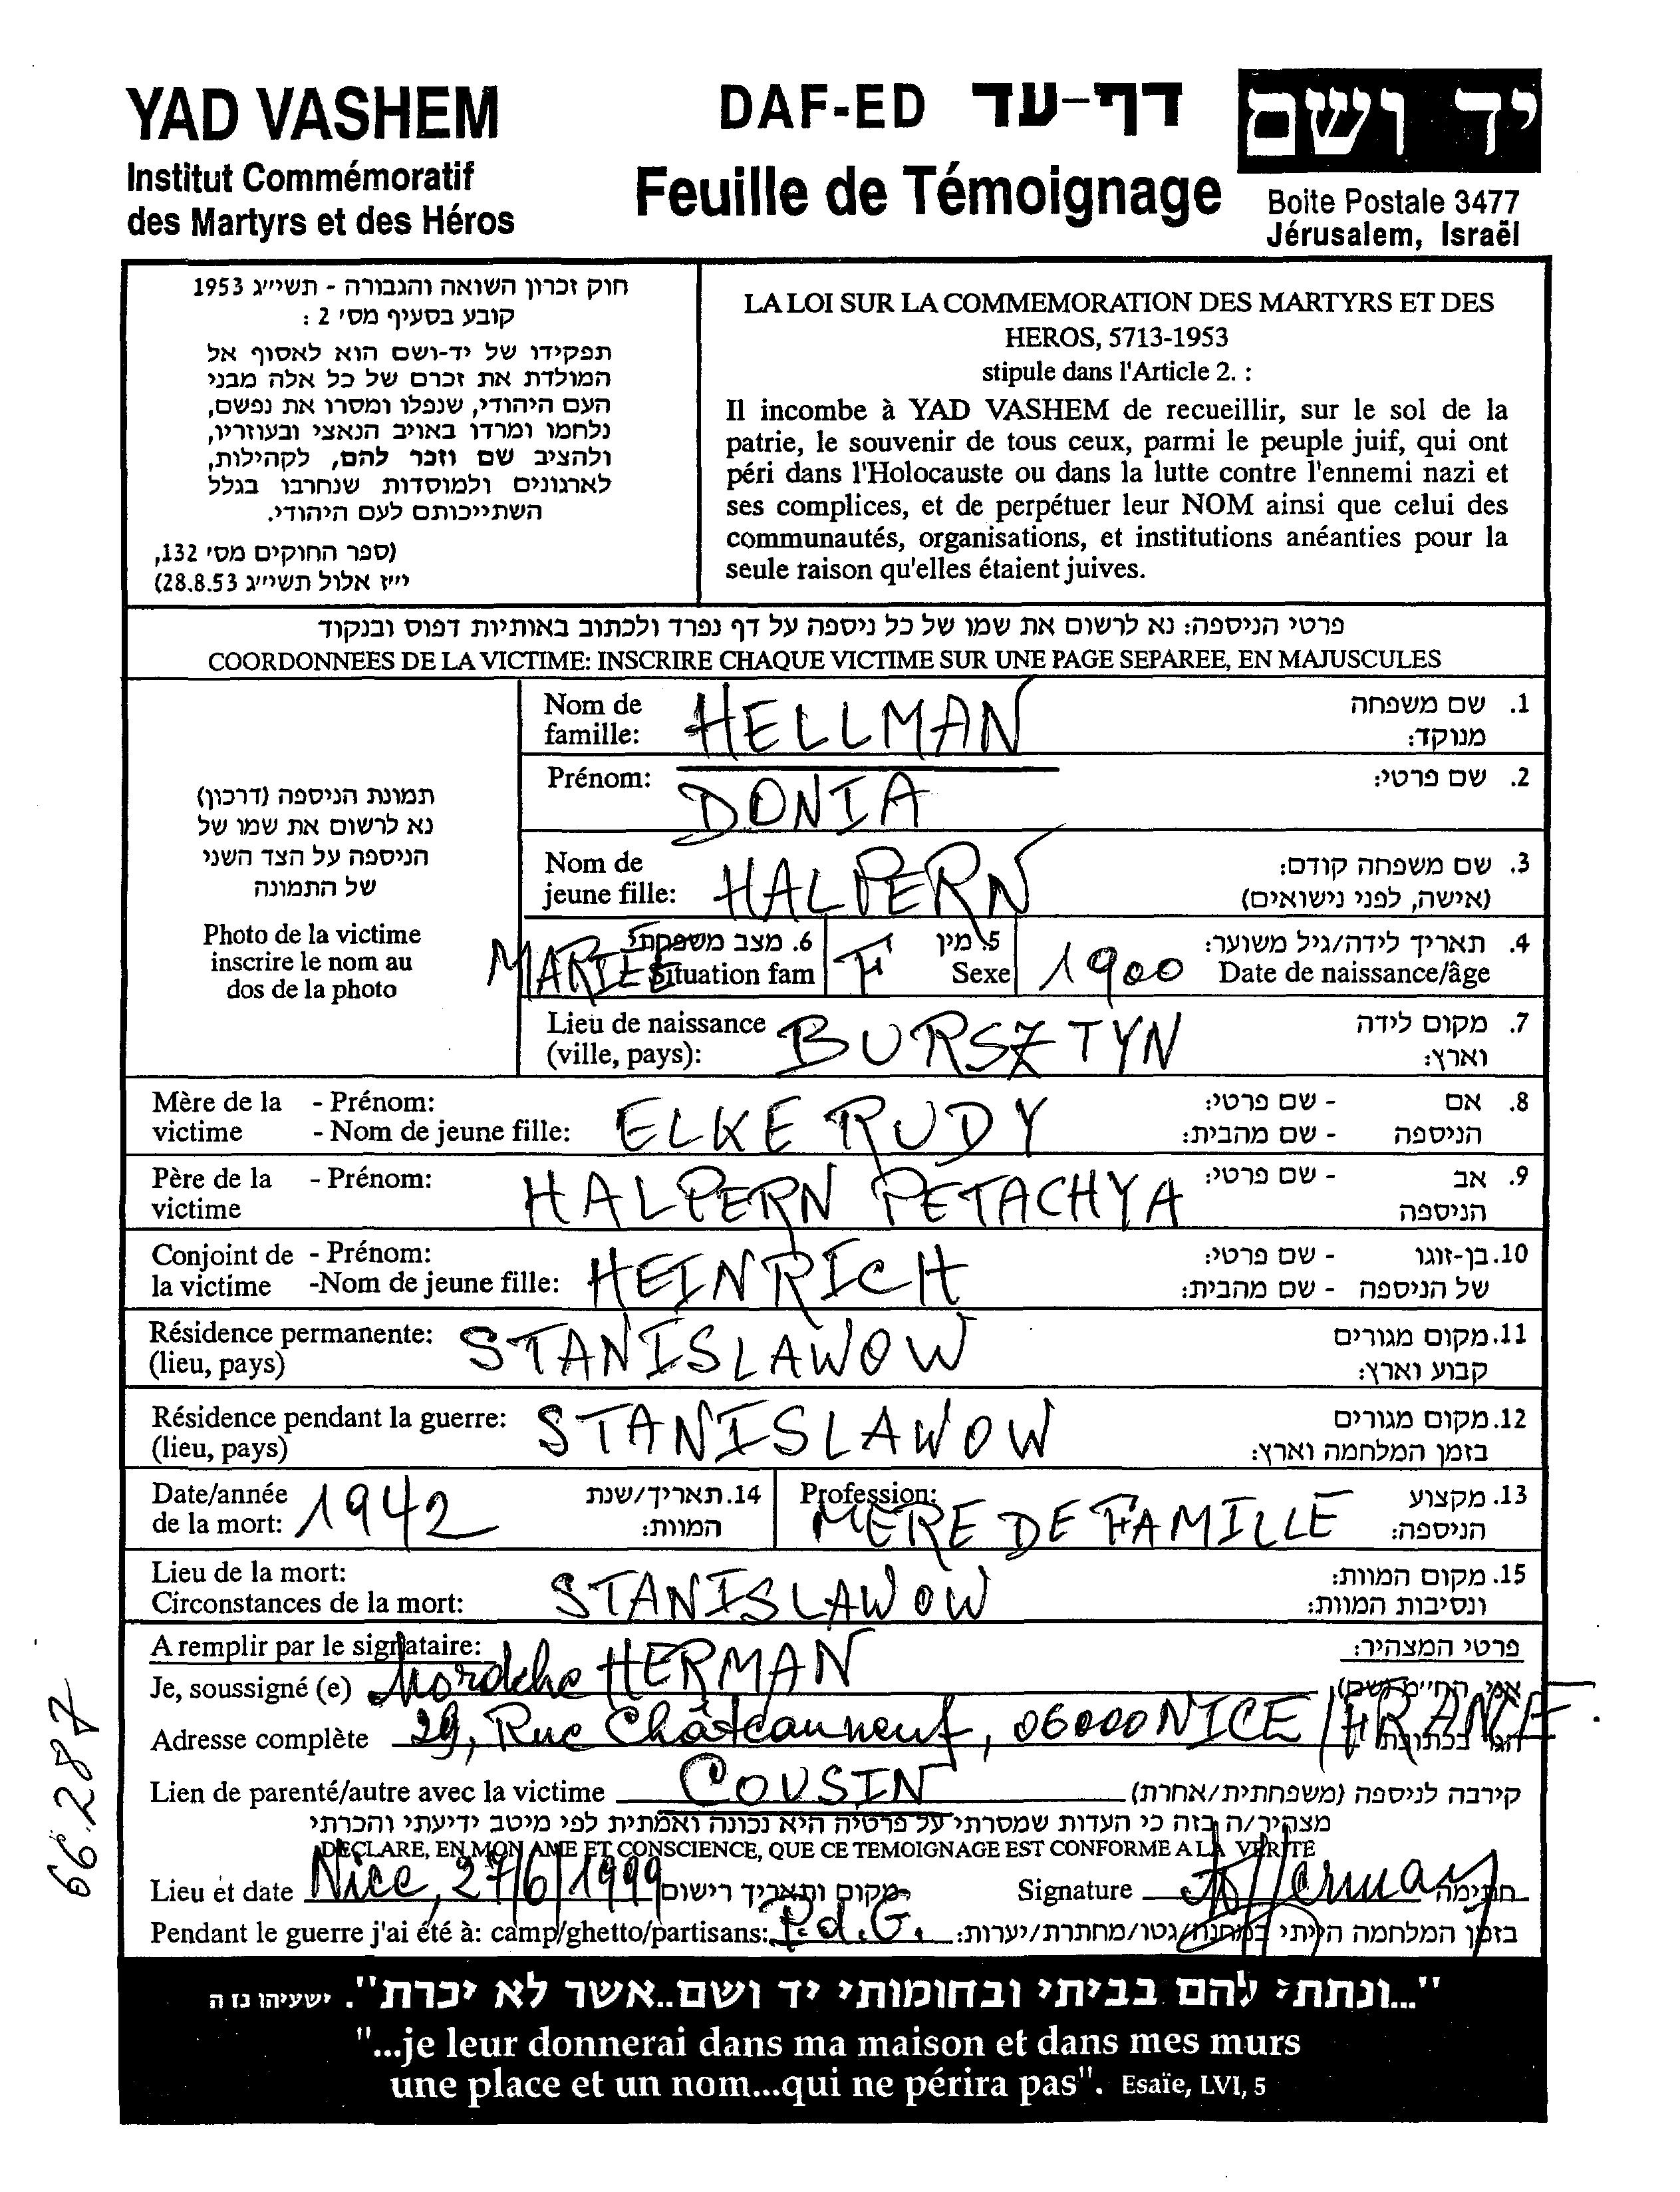 YAD VASHEM
Institut Commémoratif
des Martyrs et des Héros
DAF-ED דף-עד
Feuille de Témoignage
יד ושם
Boite Postale 3477
Jérusalem, Israël
חוק זכרון השואה והגבורה - תשי״ג 1953
קובע בסעיף מס׳ 2 :
תפקידו של יד-ושם הוא לאסוף אל
המולדת את זכרם של כל אלה מבני
העם היהודי, שנפלו ומסרו את נפשם,
נלחמו ומרדו באויב הנאצי ובעוזריו,
ולהציב שם וזכר להם, לקהילות,
לארגונים ולמוסדות שנחרבו בגלל
השתייכותם לעם היהודי.
(ספר החוקים מס׳ 132,
י״ז אלול תשי״ג 28.8.53)
LA LOI SUR LA COMMEMORATION DES MARTYRS ET DES
HEROS, 5713-1953
stipule dans l'Article 2. :
Il incombe à YAD VASHEM de recueillir, sur le sol de la
patrie, le souvenir de tous ceux, parmi le peuple juif, qui ont
péri dans l'Holocauste ou dans la lutte contre l'ennemi nazi et
ses complices, et de perpétuer leur NOM ainsi que celui des
communautés, organisations, et institutions anéanties pour la
seule raison qu'elles étaient juives.
פרטי הניספה: נא לרשום את שמו של כל ניספה על דף נפרד ולכתוב באותיות דפוס ובנקוד
COORDONNEES DE LA VICTIME: INSCRIRE CHAQUE VICTIME SUR UNE PAGE SEPAREE, EN MAJUSCULES
תמונת הניספה (דרכון)
נא לרשום את שמו של
הניספה על הצד השני
של התמונה
Photo de la victime
inscrire le nom au
dos de la photo
Nom de famille: HELLMAN 1. שם משפחה מנוקד:
Prénom: DONIA 2. שם פרטי:
Nom de jeune fille: HALPERN 3. שם משפחה קודם: (אישה, לפני נישואים)
MARIEE 6. מצב משפחתי: Situation fam F 5. מין Sexe 1900 4. תאריך לידה/גיל משוער: Date de naissance/âge
Lieu de naissance (ville, pays): BURSZTYN 7. מקום לידה וארץ:
Mère de la victime - Prénom: - Nom de jeune fille: ELKE RUDY 8. אם הניספה - שם פרטי: - שם מהבית:
Père de la victime - Prénom: HALPERN PETACHYA 9. אב הניספה - שם פרטי:
Conjoint de la victime - Prénom: -Nom de jeune fille: HEINRICH 10. בן-זוגו של הניספה - שם פרטי: - שם מהבית:
Résidence permanente: (lieu, pays) STANISLAWOW 11. מקום מגורים קבוע וארץ:
Résidence pendant la guerre: (lieu, pays) STANISLAWOW 12. מקום מגורים בזמן המלחמה וארץ:
Date/année de la mort: 1942 14. תאריך/שנת המוות: Profession: MERE DE FAMILLE 13. מקצוע הניספה:
Lieu de la mort: Circonstances de la mort: STANISLAWOW 15. מקום המוות: ונסיבות המוות:
A remplir par le signataire: פרטי המצהיר:
Je, soussigné (e) Mordche HERMAN אני, החי״מ (שם)
Adresse complète 29, Rue Châteauneuf, 06000 NICE / FRANCE. הגר בכתובת
Lien de parenté/autre avec la victime COUSIN קירבה לניספה (משפחתית/אחרת)
מצהיר/ה בזה כי העדות שמסרתי על פרטיה היא נכונה ואמתית לפי מיטב ידיעתי והכרתי
DECLARE, EN MON AME ET CONSCIENCE, QUE CE TEMOIGNAGE EST CONFORME A LA VERITE
Lieu et date Nice, 27/6/1999 מקום ותאריך רישום Signature Herman חתימה
Pendant le guerre j'ai été à: camp/ghetto/partisans: P.d.G. בזמן המלחמה הייתי במחנה/גטו/מחתרת/יערות:
"...ונתתי להם בביתי ובחומותי יד ושם..אשר לא יכרת". ישעיהו נז ה
"...je leur donnerai dans ma maison et dans mes murs
une place et un nom...qui ne périra pas". Esaïe, LVI, 5
66287